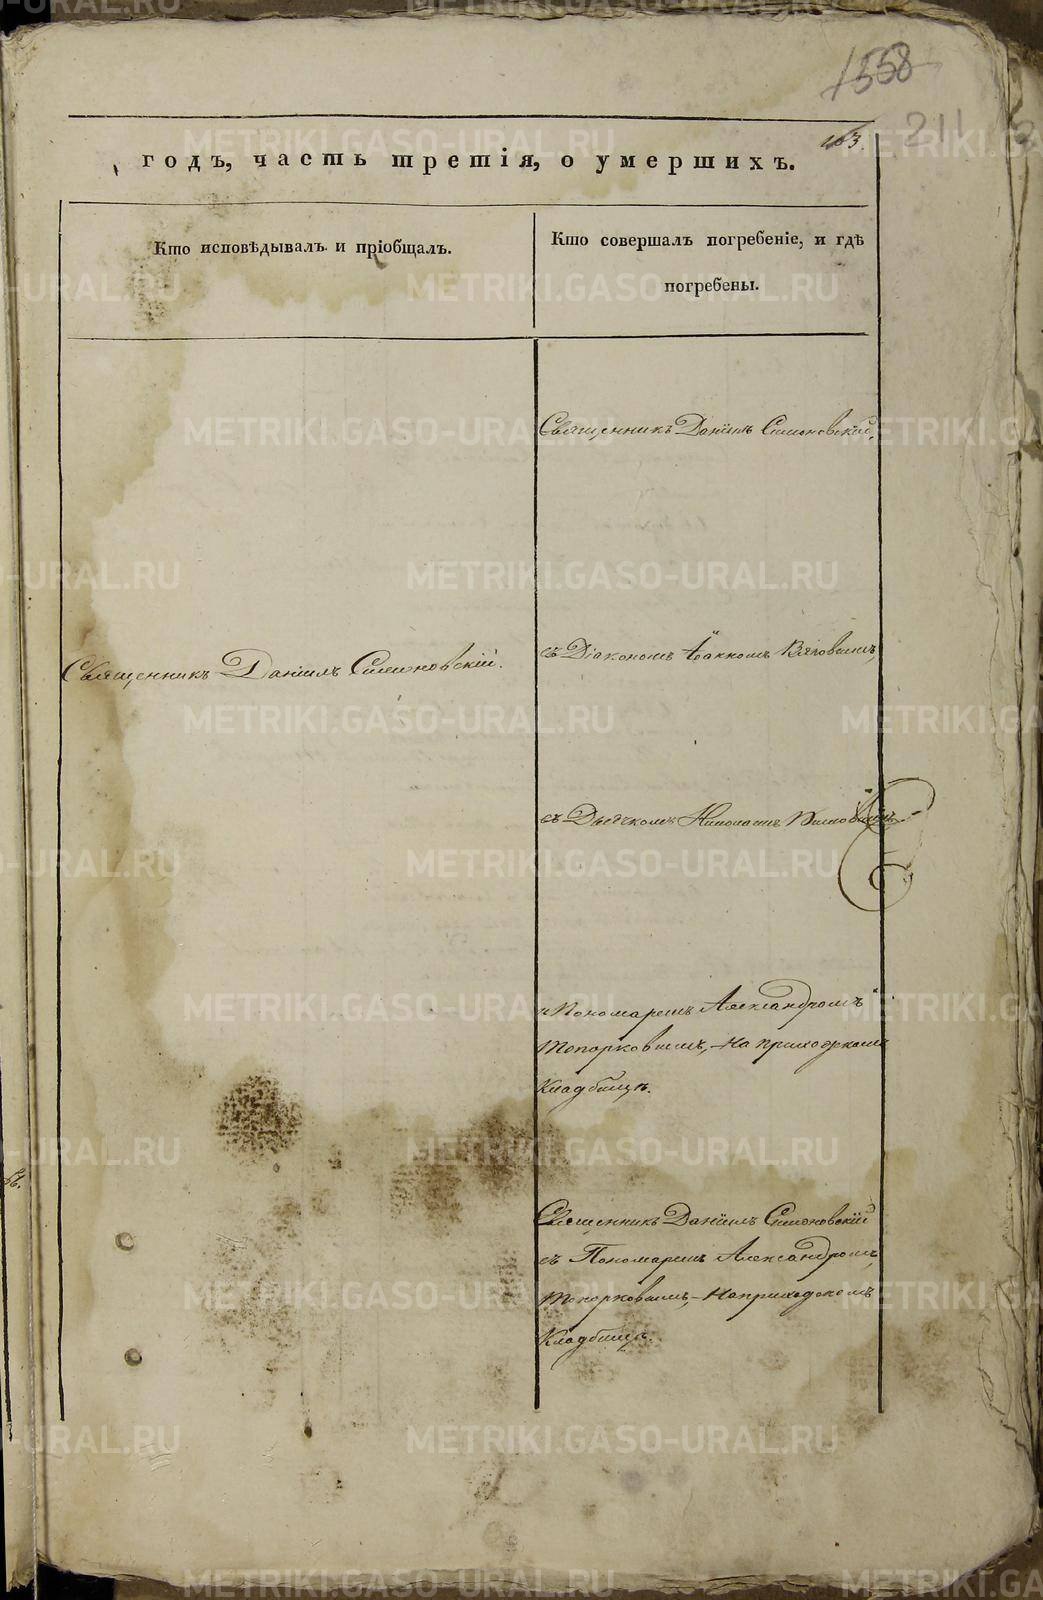 1558
211
163.
годъ, часть третія, о умершихъ.
Кто исповѣдывалъ и пріобщалъ.
Кто совершалъ погребеніе, и гдѣ
погребены.
Священникъ Даніилъ Симоновскій,
съ Діакономъ Іоанномъ
Священникъ Даніилъ Симоновскій.
съ Дьячкомъ Николаемъ
и Пономаремъ Александромъ
Топорковымъ, на приходскомъ
Кладбищѣ.
Священникъ Даніилъ Симоновскій
съ Пономаремъ Александромъ
Топорковымъ, на приходскомъ
Кладбищѣ.
METRIKI.GASO-URAL.RU